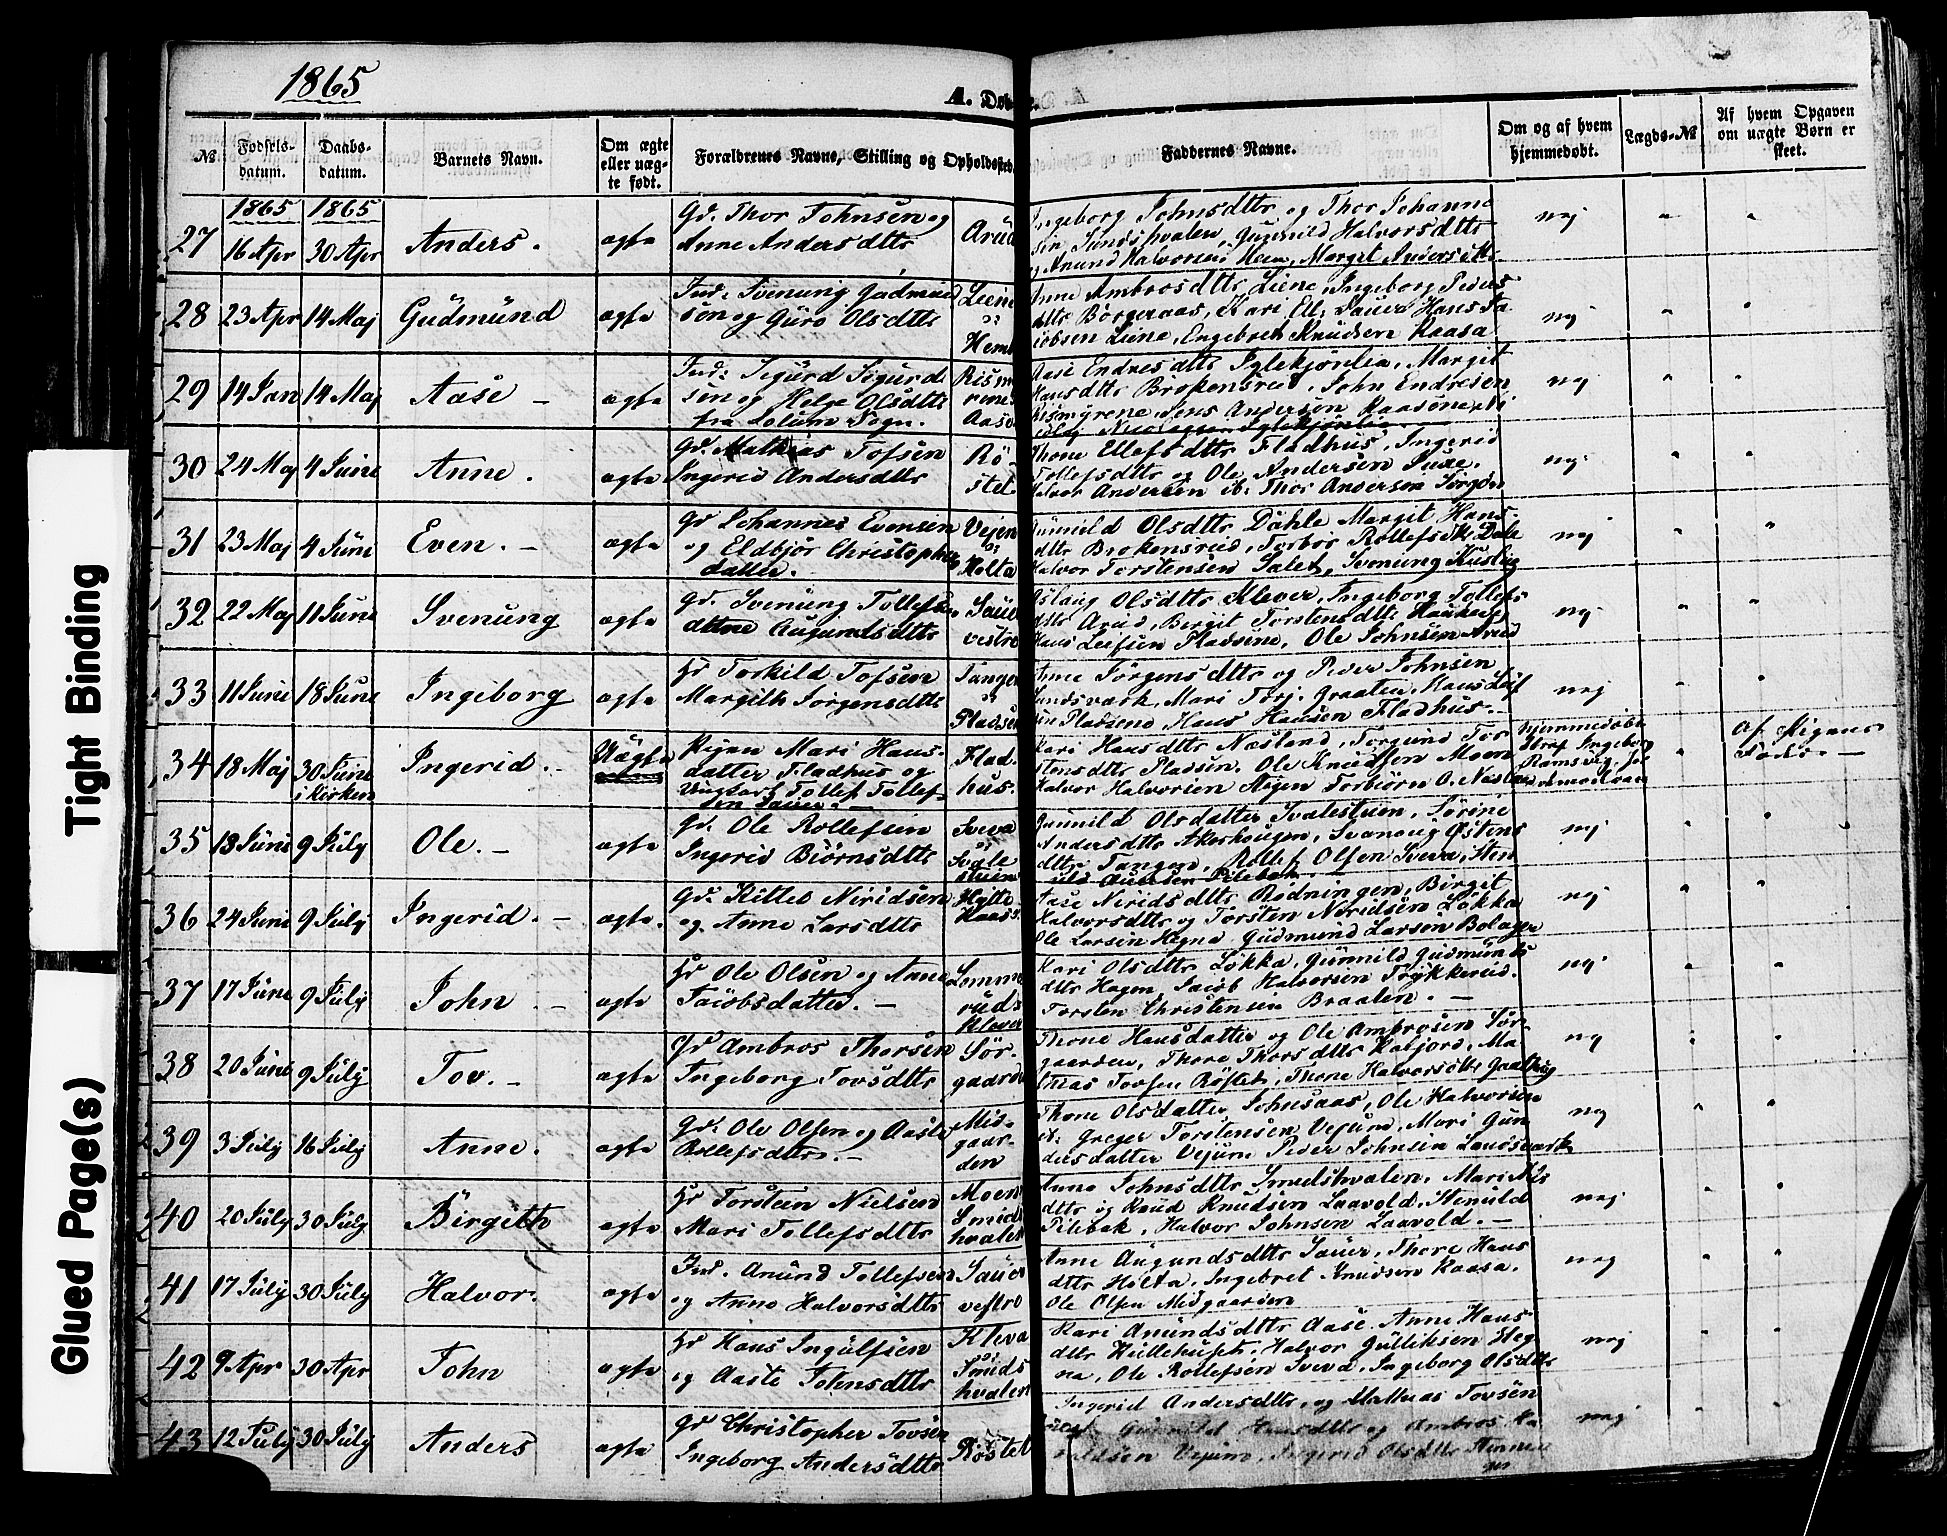 1865
A. Døb
№
Fødsels-
datum.
Daabs-
datum.
Barnets Navn.
Om ægte
eller uæg-
te født.
Forældrenes Navne, Stilling og Opholdssted
Faddernes Navne.
Om og af hvem
hjemmedøbt.
Lægds-№
Af hvem Opgaven
om uægte Børn er
skeet.
1865 1865
27 16 Apr 30 Apr Anders. ægte
Gd. Thor Johnsen og
Anne Andersdttr
Arud
Ingeborg Johnsdttr og Thor Johanne
sen, Sundshvalen, Gunnild Halvorsdttr
og Anund Halvorsen Hem, Margit Andersdttr
nej
28 23 Apr 14 Maj Gudmund ægte
Ind: Svenung Gudmund
sen og Guro Olsdttr
Liene
Hem
Anne Ambrosdttr Liene, Ingeborg Peders
dttr Borgeraas, Kari Ell: Sauer Hans Ja
cobsen Liene, Engebreth Knudsen Raasa
nej
29 14 Jan 14 Maj Aase – ægte
Ind: Sigurd Sigurd
sen og Helge Olsdttr
fra Solum Sogn.
Aase Endresdttr Iglekjønlia, Margit
Hansdttr Brokensrud, John Endresen
Rismyrene, Jens Andersen Raasone
nej
30 24 Maj 4 Juni Anne. ægte
Gd. Mathias Tofsen
Ingerid Andersdttr
Rö-
stet.
Thone Ellefsdttr Fladhus, Ingerid
Tollefsdttr og Ole Andersen
Halvor Andersen ib: Thor Andersen
nej
31 23 Maj 4 Juni Even. – ægte
Gd Johannes Evensen
og Eldbjör Christopher
datter.
Vejen
Holta
Gunnild Olsdttr Dahle Margit Hans-
dttr Brokensrud, Torbor Rollefsdttr Dale
Halvor Torstensen Salet, Svenung
nej
32 22 Maj 11 Juni Svenung ægte
Gd. Svenung Tollefsen
Anne Augundsdttr
Sauer
vestre
Aslaug Olsdttr Klever, Ingeborg Tollefs
dttr Arud, Bergit Torstensdttr
Hans Leefsen Pladsene, Ole Johnsen Arud
nej
33 11 Juni 18 Juni Ingeborg ægte
Gd Torkild Tofsen
Margith Jörgensdttr
Tangen
Pladsen
Anne Jörgensdttr og Peder Johnsen
Sundsværk, Mari Torj. Graaten, Hans Leif
sen Pladsene, Hans Hansen Fladhus. –
nej
34 18 Maj 30 Juni
i Kirken
Ingerid. – Uægte
Pigen Mari Hans-
datter Fladhus og
Ungkarl Tollef Tollef-
sen Sauer. –
Flad-
hus.
Kari Hansdttr Næsland, Torgund Tor
stensdttr Pladsen, Ole Knudsen Moen
Halvor Halvorsen Aasen Torbiörn O. Næsland
hjemmedöbt
Straf Ingeborg
Ramsvig.
Af Pigens
Fader –
35 18 Juni 9 July Ole. – ægte
Gd. Ole Rollefsen
Ingerid Biörnsdttr
Sveva
Svale
stuen
Gunnild Olsdatter Svalestuen, Sörine
Andersdttr Akershaugen, Svanaug Östens
dttr Tangen, Rollef Olsen Sveva, Sten
nej
36 24 Juni 9 July Ingerid. – ægte.
Gd. Kittel Niridsen
og Anne Larsdttr
Hytte
Haas
Aase Neridsdttr Rödningen, Birgit
Halvorsdttr og Torsten Neridsen Lökka
Ole Larsen Hegna Gudmund Larsen Bolager
nej
37 17 Juni 9 July John – ægte
Gd Ole Olsen og Anne
Jacobsdatter. –
Lomme
ruds
Klever
Kari Olsdttr Lökka, Gunnild Gudmunds
dttr Hagen, Jacob Halvorsen Trykkerud.
Torsten Christensen Braaten. –
nej
38 20 Juni 9 July Tov. – ægte
Gd Ambros Thorsen
Ingeborg Tovsdttr
Sör-
gaarden
Thone Hansdatter og Ole Ambrosen Sör-
gaarden, Thore Thorsdttr Hafjord, Ma
thias Tovsen Röstet, Thone Halvorsdttr
nej
39 3 July 16 July Anne. ægte
Gd: Ole Olsen og Aaste
Rollefsdttr. –
Mid-
gaar-
den
Thone Olsdatter Johnsaas, Ole Halvorsen
ib. Greger Torstensen Vejum, Mari Gun
dersdatter Vejum Peder Johnsen Sandsværk
nej
40 20 July 30 July Birgith ægte
Gd Torstein Nielsen
Mari Tollefsdttr
Moen
Smids
hvalen
Anne Johnsdttr Smidshvalen, Mari Nils
dttr og Knud Knudsen Laavold, Stenuld
Pilebak, Halvor Johnsen Laavold. –
nej
41 17 July 30 July Halvor. ægte
Ind. Anund Tollefsen
og Anne Halvorsdttr
Sauer
vestre
Anne Augundsdttr Sauer, Thore Hans
dttr Holta, Ingebret Knudsen Raasa.
Ole Olsen Midgaarden
nej
42 9 Apr 30 Apr John ægte
Gd Hans Ingulfsen
og Aaste Johnsdttr
Kleva
Smids
hvalen
Kari Anundsdttr Aase, Anne Hans-
dttr Hullehuset, Halvor Gulliksen Heg
na, Ole Rollefsen Sveva, Ingeborg Olsdttr
nej
43 12 July 30 July Anders ægte
Gd Christopher Tovsen
Ingeborg Andersdttr
Röstet
Ingerid Andersdttr, og Mathias Tovsen
Gunnild Hansdttr og Ambros
Vejum, Ingerid Olsdttr
nej
Tight Binding
Glued Page(s)